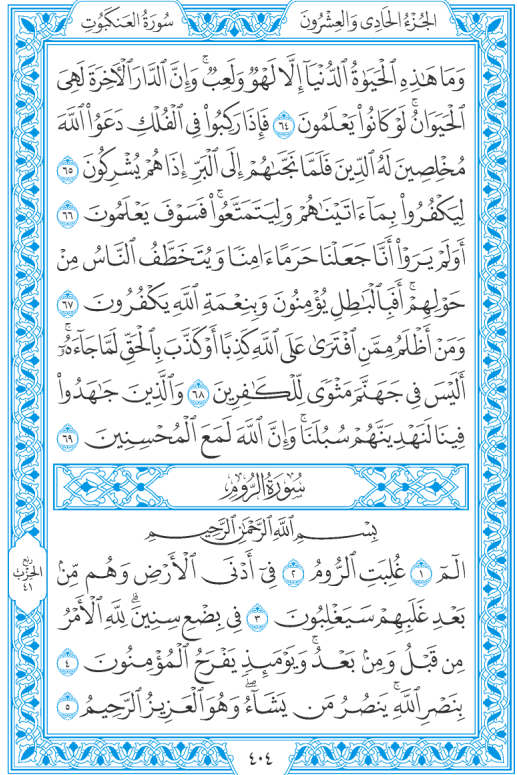 الجُزْءُ الحَادِي وَالعِشْرُونَ سُورَةُ العَنكَبُوتِ
وَمَا هَٰذِهِ الْحَيَوٰةُ الدُّنْيَآ إِلَّا لَهْوٌ وَلَعِبٌ ۚ وَإِنَّ الدَّارَ الْأَخِرَةَ لَهِىَ
الْحَيَوَانُ ۚ لَوْ كَانُوا۟ يَعْلَمُونَ ٦٤ فَإِذَا رَكِبُوا۟ فِى الْفُلْكِ دَعَوُا۟ اللَّهَ
مُخْلِصِينَ لَهُ الدِّينَ فَلَمَّا نَجَّىٰهُمْ إِلَى الْبَرِّ إِذَا هُمْ يُشْرِكُونَ ٦٥
لِيَكْفُرُوا۟ بِمَآ ءَاتَيْنَٰهُمْ وَلِيَتَمَتَّعُوا۟ ۖ فَسَوْفَ يَعْلَمُونَ ٦٦
أَوَلَمْ يَرَوْا۟ أَنَّا جَعَلْنَا حَرَمًا ءَامِنًا وَيُتَخَطَّفُ النَّاسُ مِنْ
حَوْلِهِمْ ۚ أَفَبِالْبَٰطِلِ يُؤْمِنُونَ وَبِنِعْمَةِ اللَّهِ يَكْفُرُونَ ٦٧
وَمَنْ أَظْلَمُ مِمَّنِ افْتَرَىٰ عَلَى اللَّهِ كَذِبًا أَوْ كَذَّبَ بِالْحَقِّ لَمَّا جَآءَهُۥٓ ۚ
أَلَيْسَ فِى جَهَنَّمَ مَثْوًى لِّلْكَٰفِرِينَ ٦٨ وَالَّذِينَ جَٰهَدُوا۟
فِينَا لَنَهْدِيَنَّهُمْ سُبُلَنَا ۚ وَإِنَّ اللَّهَ لَمَعَ الْمُحْسِنِينَ ٦٩
سُورَةُ الرُّومِ
بِسْمِ اللَّهِ الرَّحْمَٰنِ الرَّحِيمِ
الٓمٓ ١ غُلِبَتِ الرُّومُ ٢ فِىٓ أَدْنَى الْأَرْضِ وَهُم مِّنۢ
ربع
الحزب
٤١
بَعْدِ غَلَبِهِمْ سَيَغْلِبُونَ ٣ فِى بِضْعِ سِنِينَ ۗ لِلَّهِ الْأَمْرُ
مِن قَبْلُ وَمِنۢ بَعْدُ ۚ وَيَوْمَئِذٍ يَفْرَحُ الْمُؤْمِنُونَ ٤
بِنَصْرِ اللَّهِ ۚ يَنصُرُ مَن يَشَآءُ ۖ وَهُوَ الْعَزِيزُ الرَّحِيمُ ٥
٤٠٤